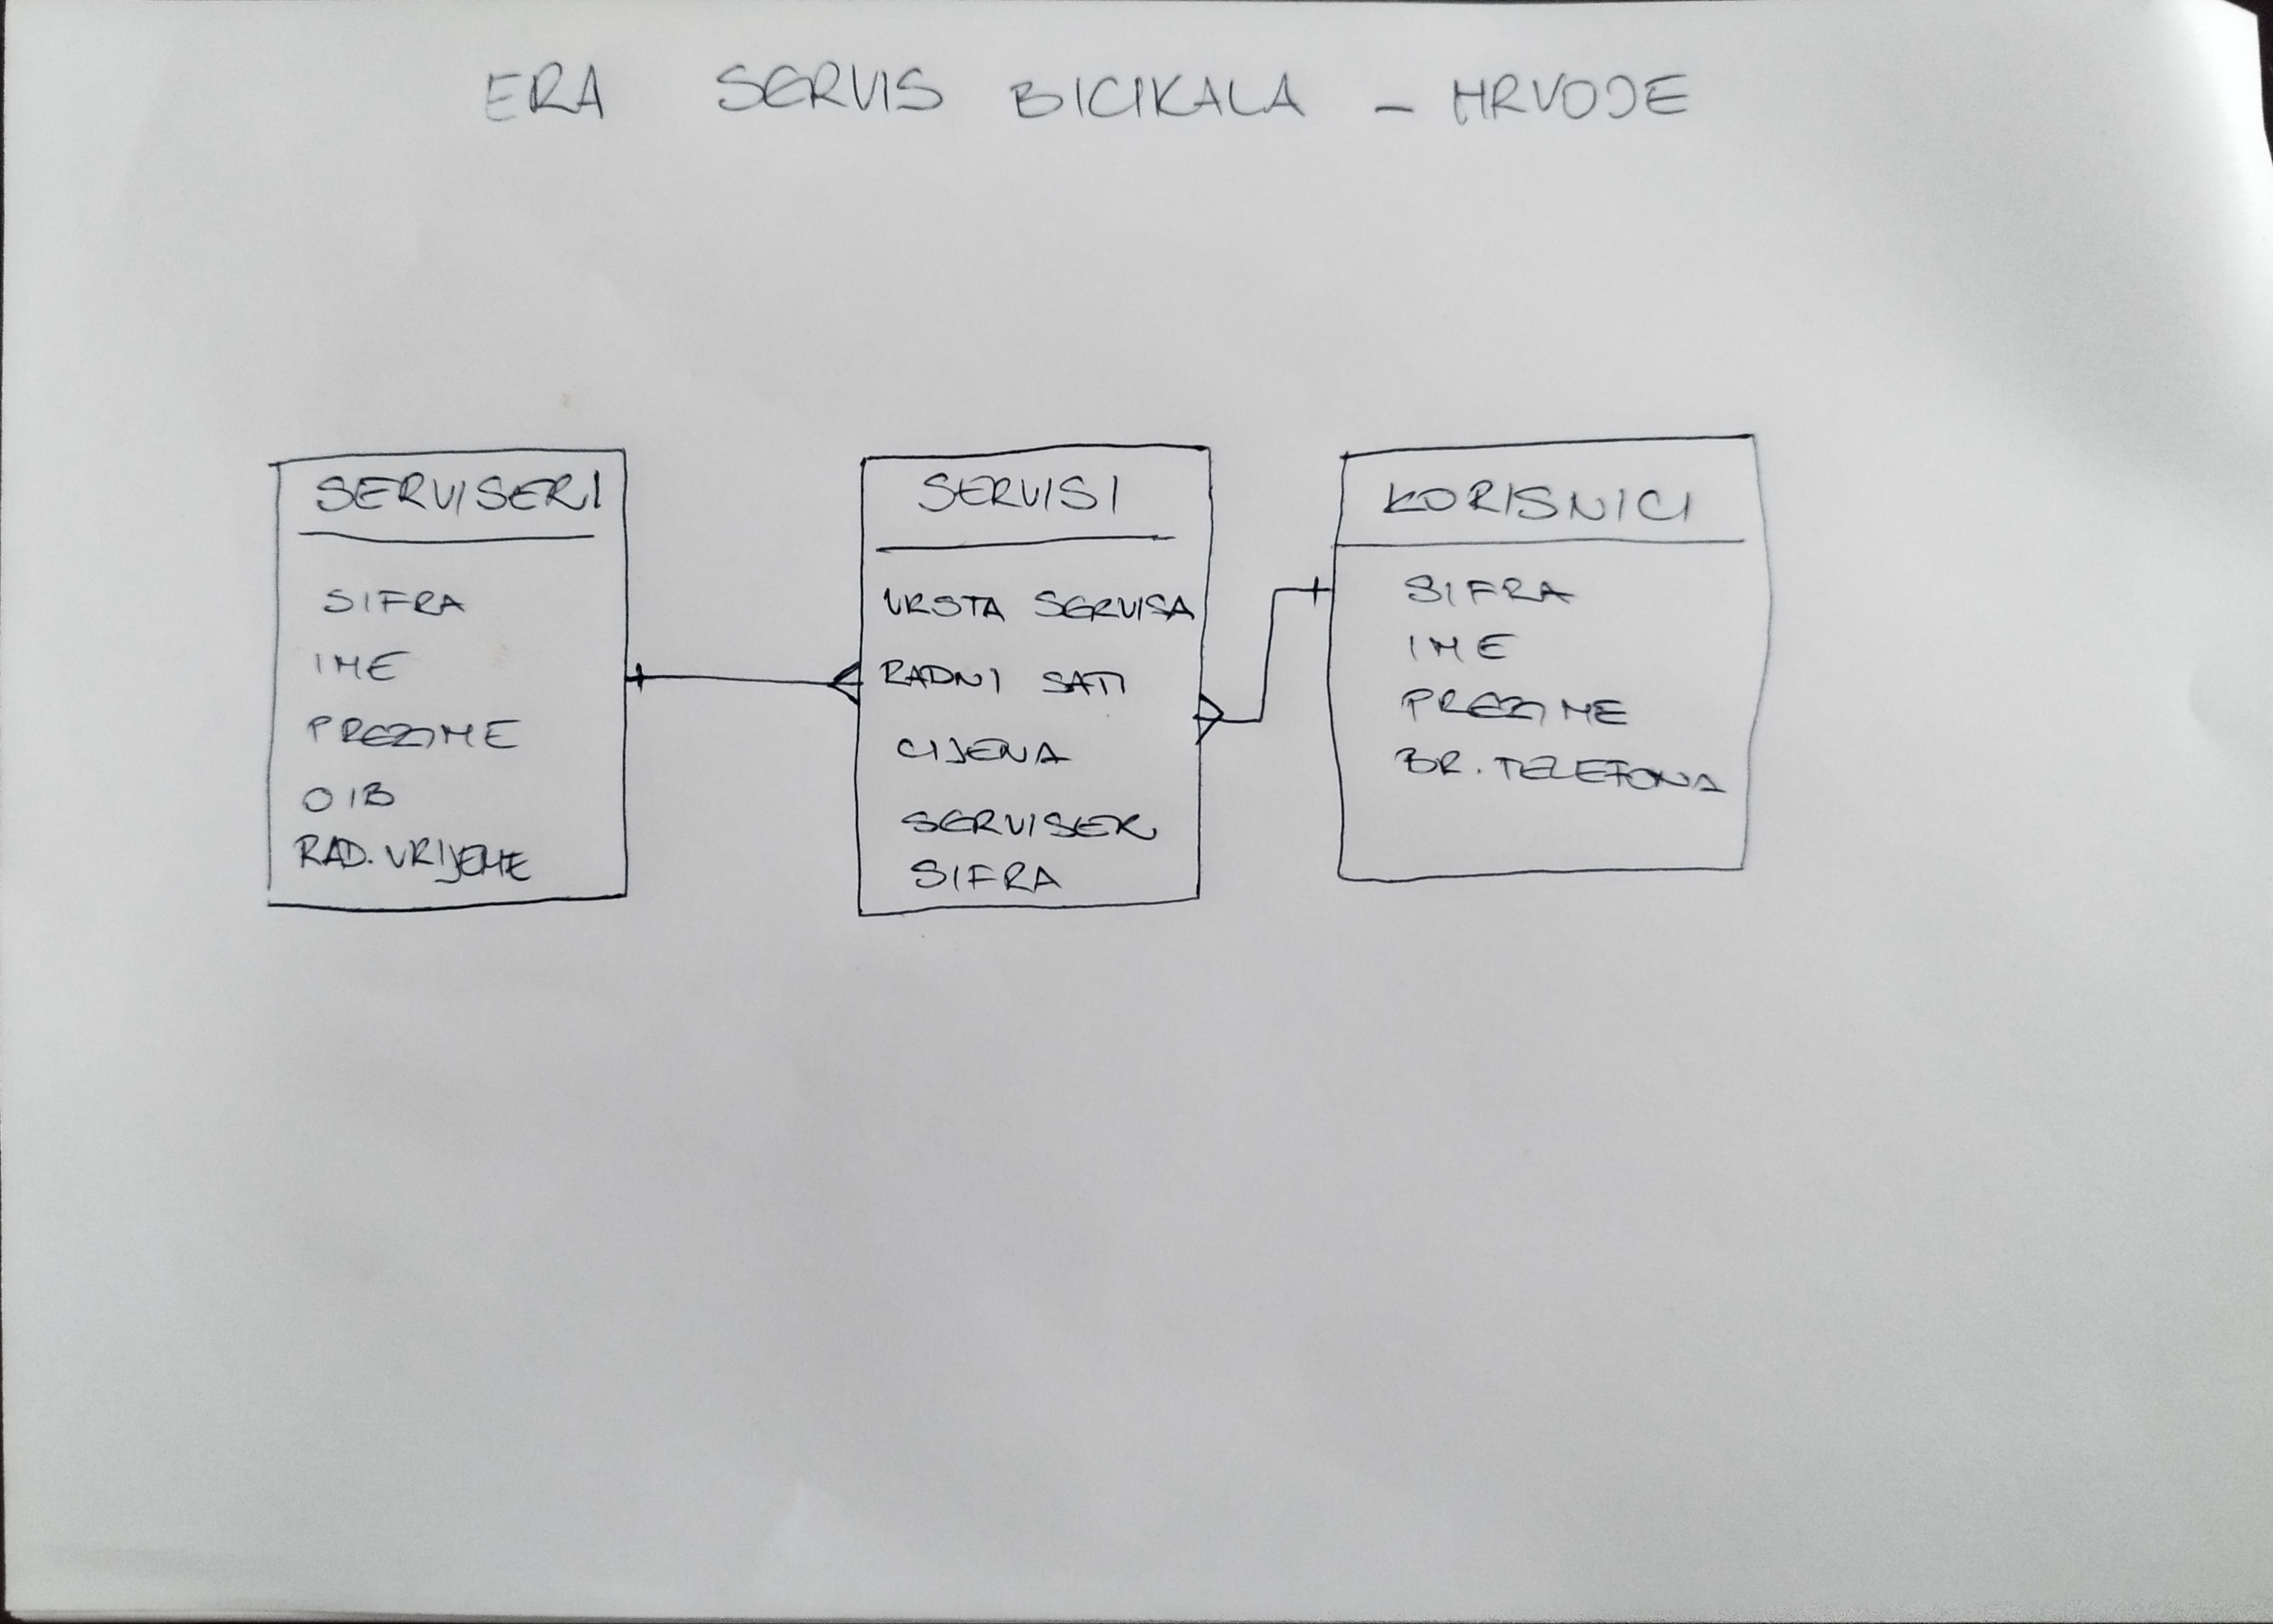 ERA SERVIS BICIKALA - HRVOJE
SERVISERI
SIFRA
IME
PREZIME
OIB
RAD. VRIJEME
SERVISI
VRSTA SERVISA
RADNI SATI
CIJENA
SERVISER
SIFRA
KORISNICI
SIFRA
IME
PREZIME
BR. TELEFONA